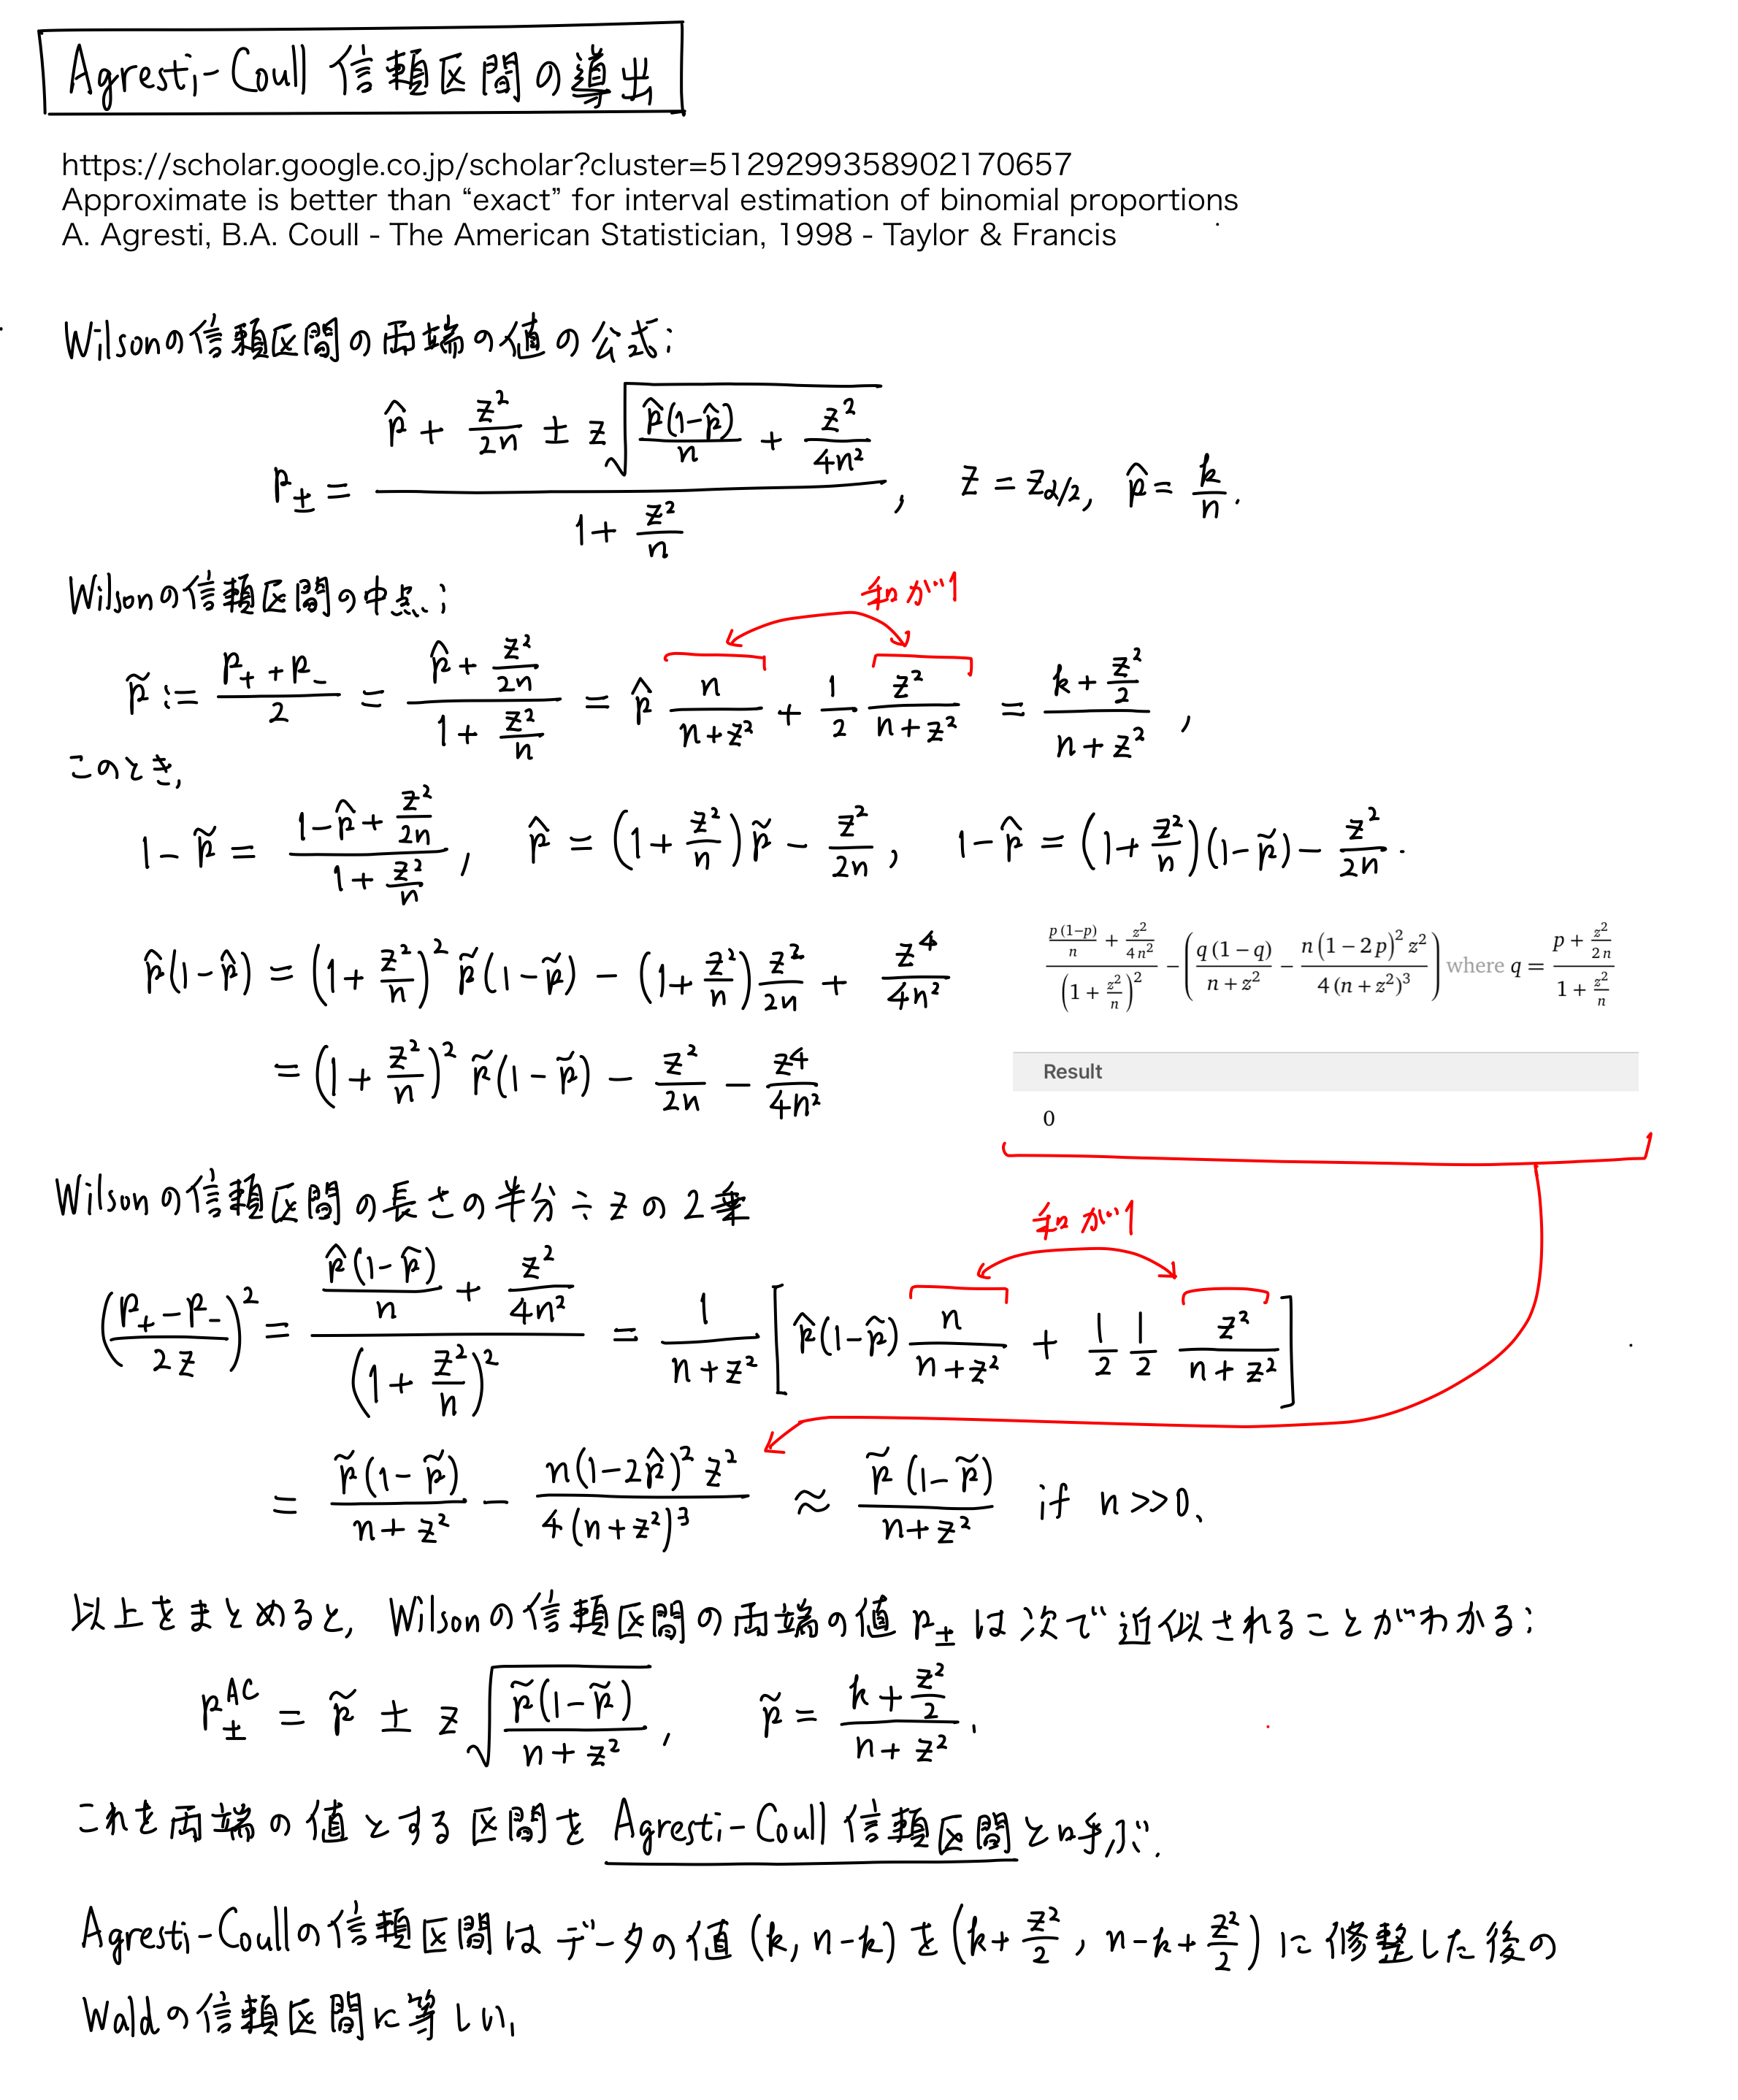 Agresti-Coull 信頼区間の導出
https://scholar.google.co.jp/scholar?cluster=5129299358902170657
Approximate is better than “exact” for interval estimation of binomial proportions
A. Agresti, B.A. Coull - The American Statistician, 1998 - Taylor & Francis
Wilsonの信頼区間の両端の値の公式:
p_± = (p̂ + z²/(2n) ± z√(p̂(1-p̂)/n + z²/(4n²))) / (1 + z²/n), z = z_{α/2}, p̂ = k/n.
Wilsonの信頼区間の中点:
和が1
p̃ := (p_+ + p_-)/2 = (p̂ + z²/(2n)) / (1 + z²/n) = p̂ n/(n+z²) + 1/2 z²/(n+z²) = (k + z²/2)/(n+z²),
このとき,
1-p̃ = (1-p̂+z²/(2n)) / (1+z²/n), p̂ = (1+z²/n)p̃ - z²/(2n), 1-p̂ = (1+z²/n)(1-p̃) - z²/(2n).
p̂(1-p̂) = (1+z²/n)² p̃(1-p̃) - (1+z²/n) z²/(2n) + z⁴/(4n²)
= (1+z²/n)² p̃(1-p̃) - z²/(2n) - z⁴/(4n²)
(p(1-p)/n + z²/(4n²)) / (1+z²/n)² - (q(1-q)/(n+z²) - n(1-2p)²z²/(4(n+z²)³)) where q = (p + z²/(2n)) / (1 + z²/n)
Result
0
Wilsonの信頼区間の長さの半分÷zの2乗
和が1
((p_+ - p_-)/(2z))² = (p̂(1-p̂)/n + z²/(4n²)) / (1+z²/n)² = 1/(n+z²) [p̂(1-p̂) n/(n+z²) + 1/2 1/2 z²/(n+z²)]
= p̃(1-p̃)/(n+z²) - n(1-2p̂)²z²/(4(n+z²)³) ≈ p̃(1-p̃)/(n+z²) if n>>0.
以上をまとめると, Wilsonの信頼区間の両端の値 p_± は次で近似されることがわかる:
p_±^{AC} = p̃ ± z√(p̃(1-p̃)/(n+z²)), p̃ = (k+z²/2)/(n+z²).
これを両端の値とする区間を Agresti-Coull 信頼区間と呼ぶ.
Agresti-Coullの信頼区間はデータの値 (k, n-k) を (k+z²/2, n-k+z²/2) に修整した後の
Waldの信頼区間に等しい.